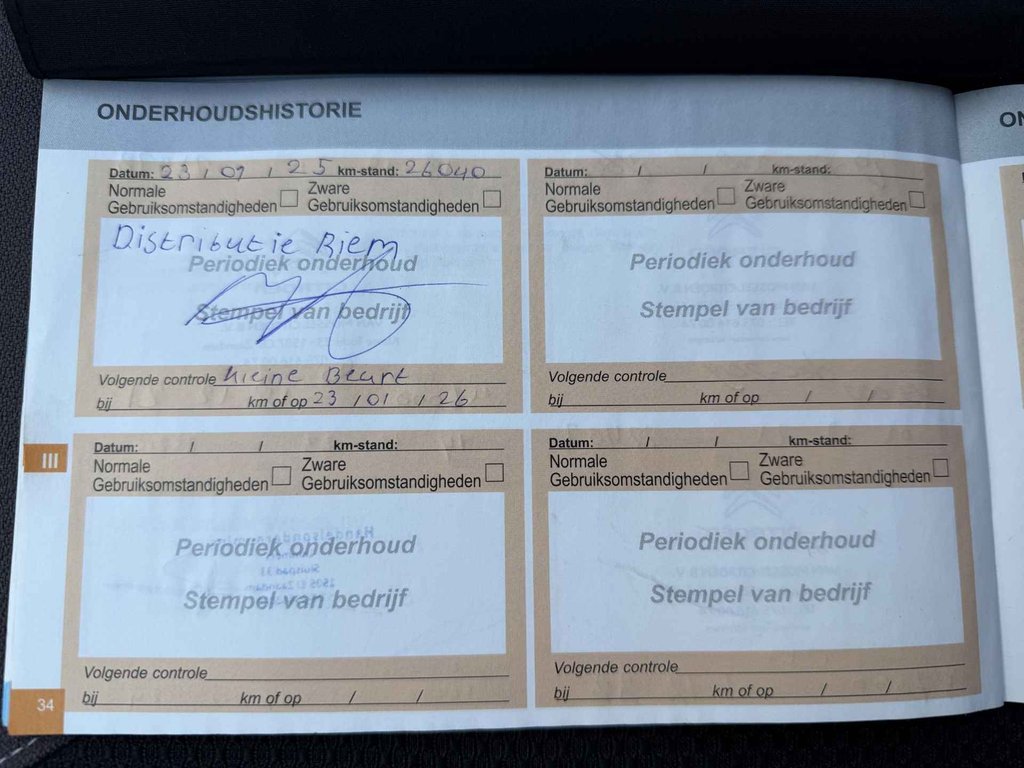 ONDERHOUDSHISTORIE
Datum: 23 / 09 / 25 km-stand: 26040
Normale Gebruiksomstandigheden
Zware Gebruiksomstandigheden
Distributie Riem
Periodiek onderhoud
Stempel van bedrijf
Volgende controle Kleine Beurt
bij km of op 23 / 01 / 26
Datum: / / km-stand:
Normale Gebruiksomstandigheden
Zware Gebruiksomstandigheden
Periodiek onderhoud
Stempel van bedrijf
Volgende controle
bij km of op / /
III
Datum: / / km-stand:
Normale Gebruiksomstandigheden
Zware Gebruiksomstandigheden
Periodiek onderhoud
Stempel van bedrijf
Volgende controle
bij km of op / /
Datum: / / km-stand:
Normale Gebruiksomstandigheden
Zware Gebruiksomstandigheden
Periodiek onderhoud
Stempel van bedrijf
Volgende controle
bij km of op / /
34